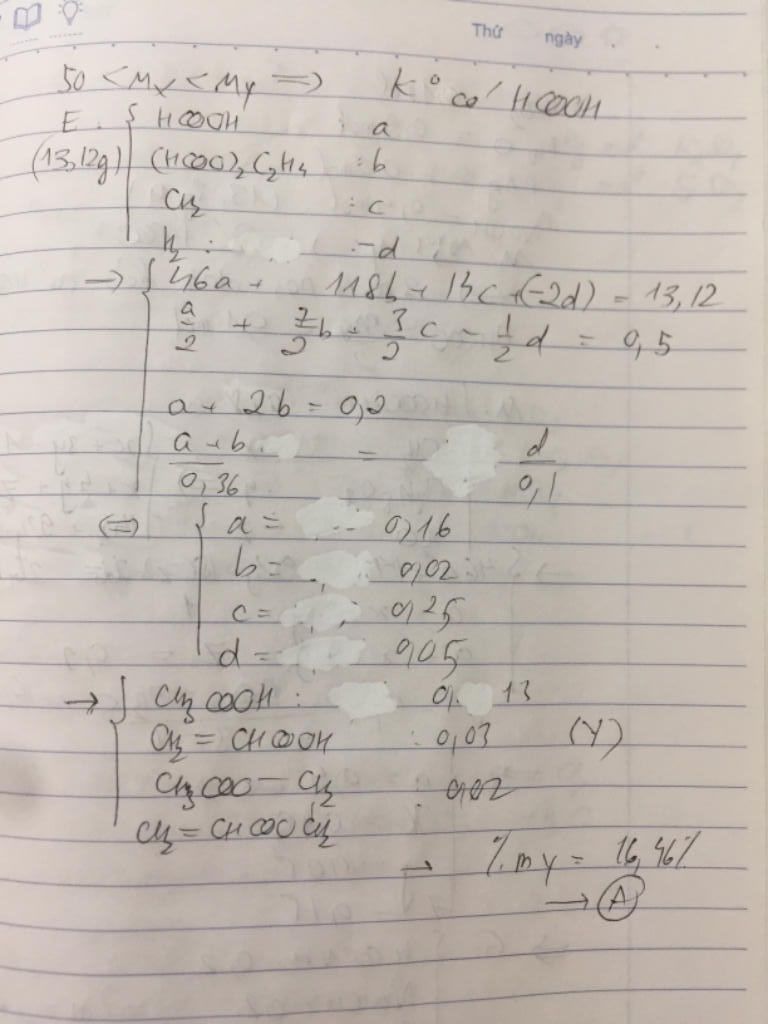 Thứ ngày
50 < Mx < My => K° có HCOOH
E : { HCOOH : a
(13,12g) (HCOO)₂C₂H₄ : b
CH₂ : c
H₂ : -d
→ { 46a + 118b + 14c + (-2d) = 13,12
a/2 + 7/2 b + 3/2 c - 1/2 d = 0,5
a + 2b = 0,2
(a + b)/0,36 = d/0,1
<=> { a = 0,16
b = 0,02
c = 0,25
d = 0,05
→ { CH₃COOH : 0,13
CH₂ = CHCOOH : 0,03 (Y)
CH₃COO – CH₂ : 0,02
CH₂ = CHCOOCH₂
→ % mY = 16,46%
→ A